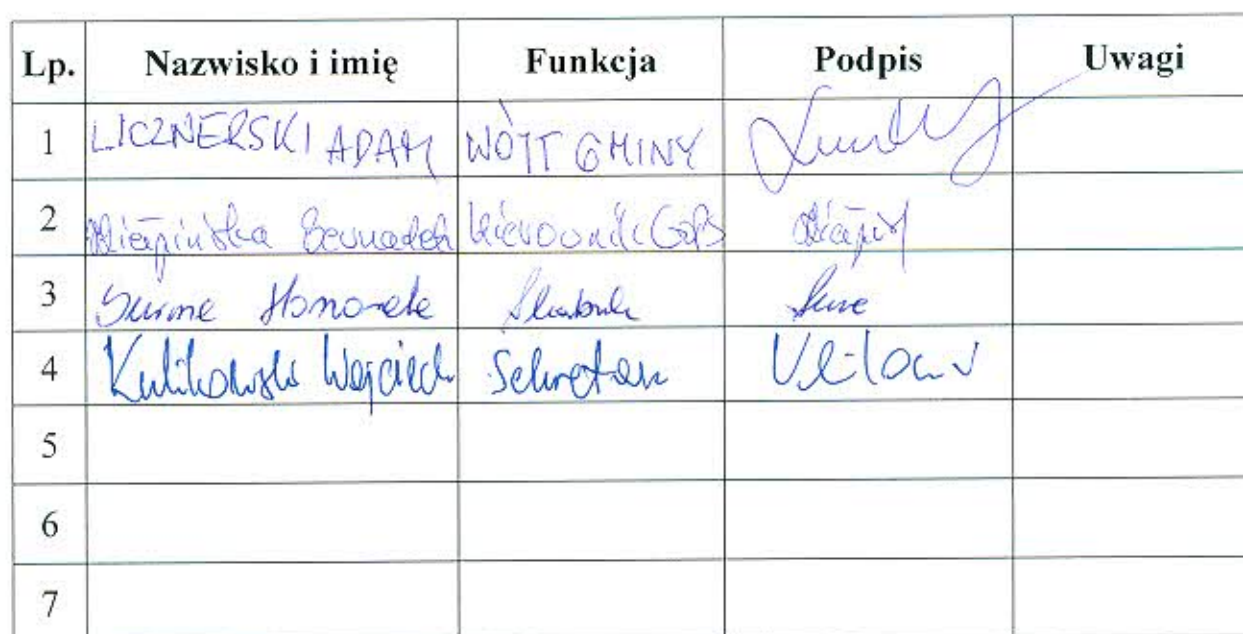 Lp. Nazwisko i imię Funkcja Podpis Uwagi
1 LICZNERSKI ADAM WÓJT GMINY
2 Kierownik GOPS
3 Honorata Skarbnik
4 Kulikowski Wojciech Sekretarz
5
6
7